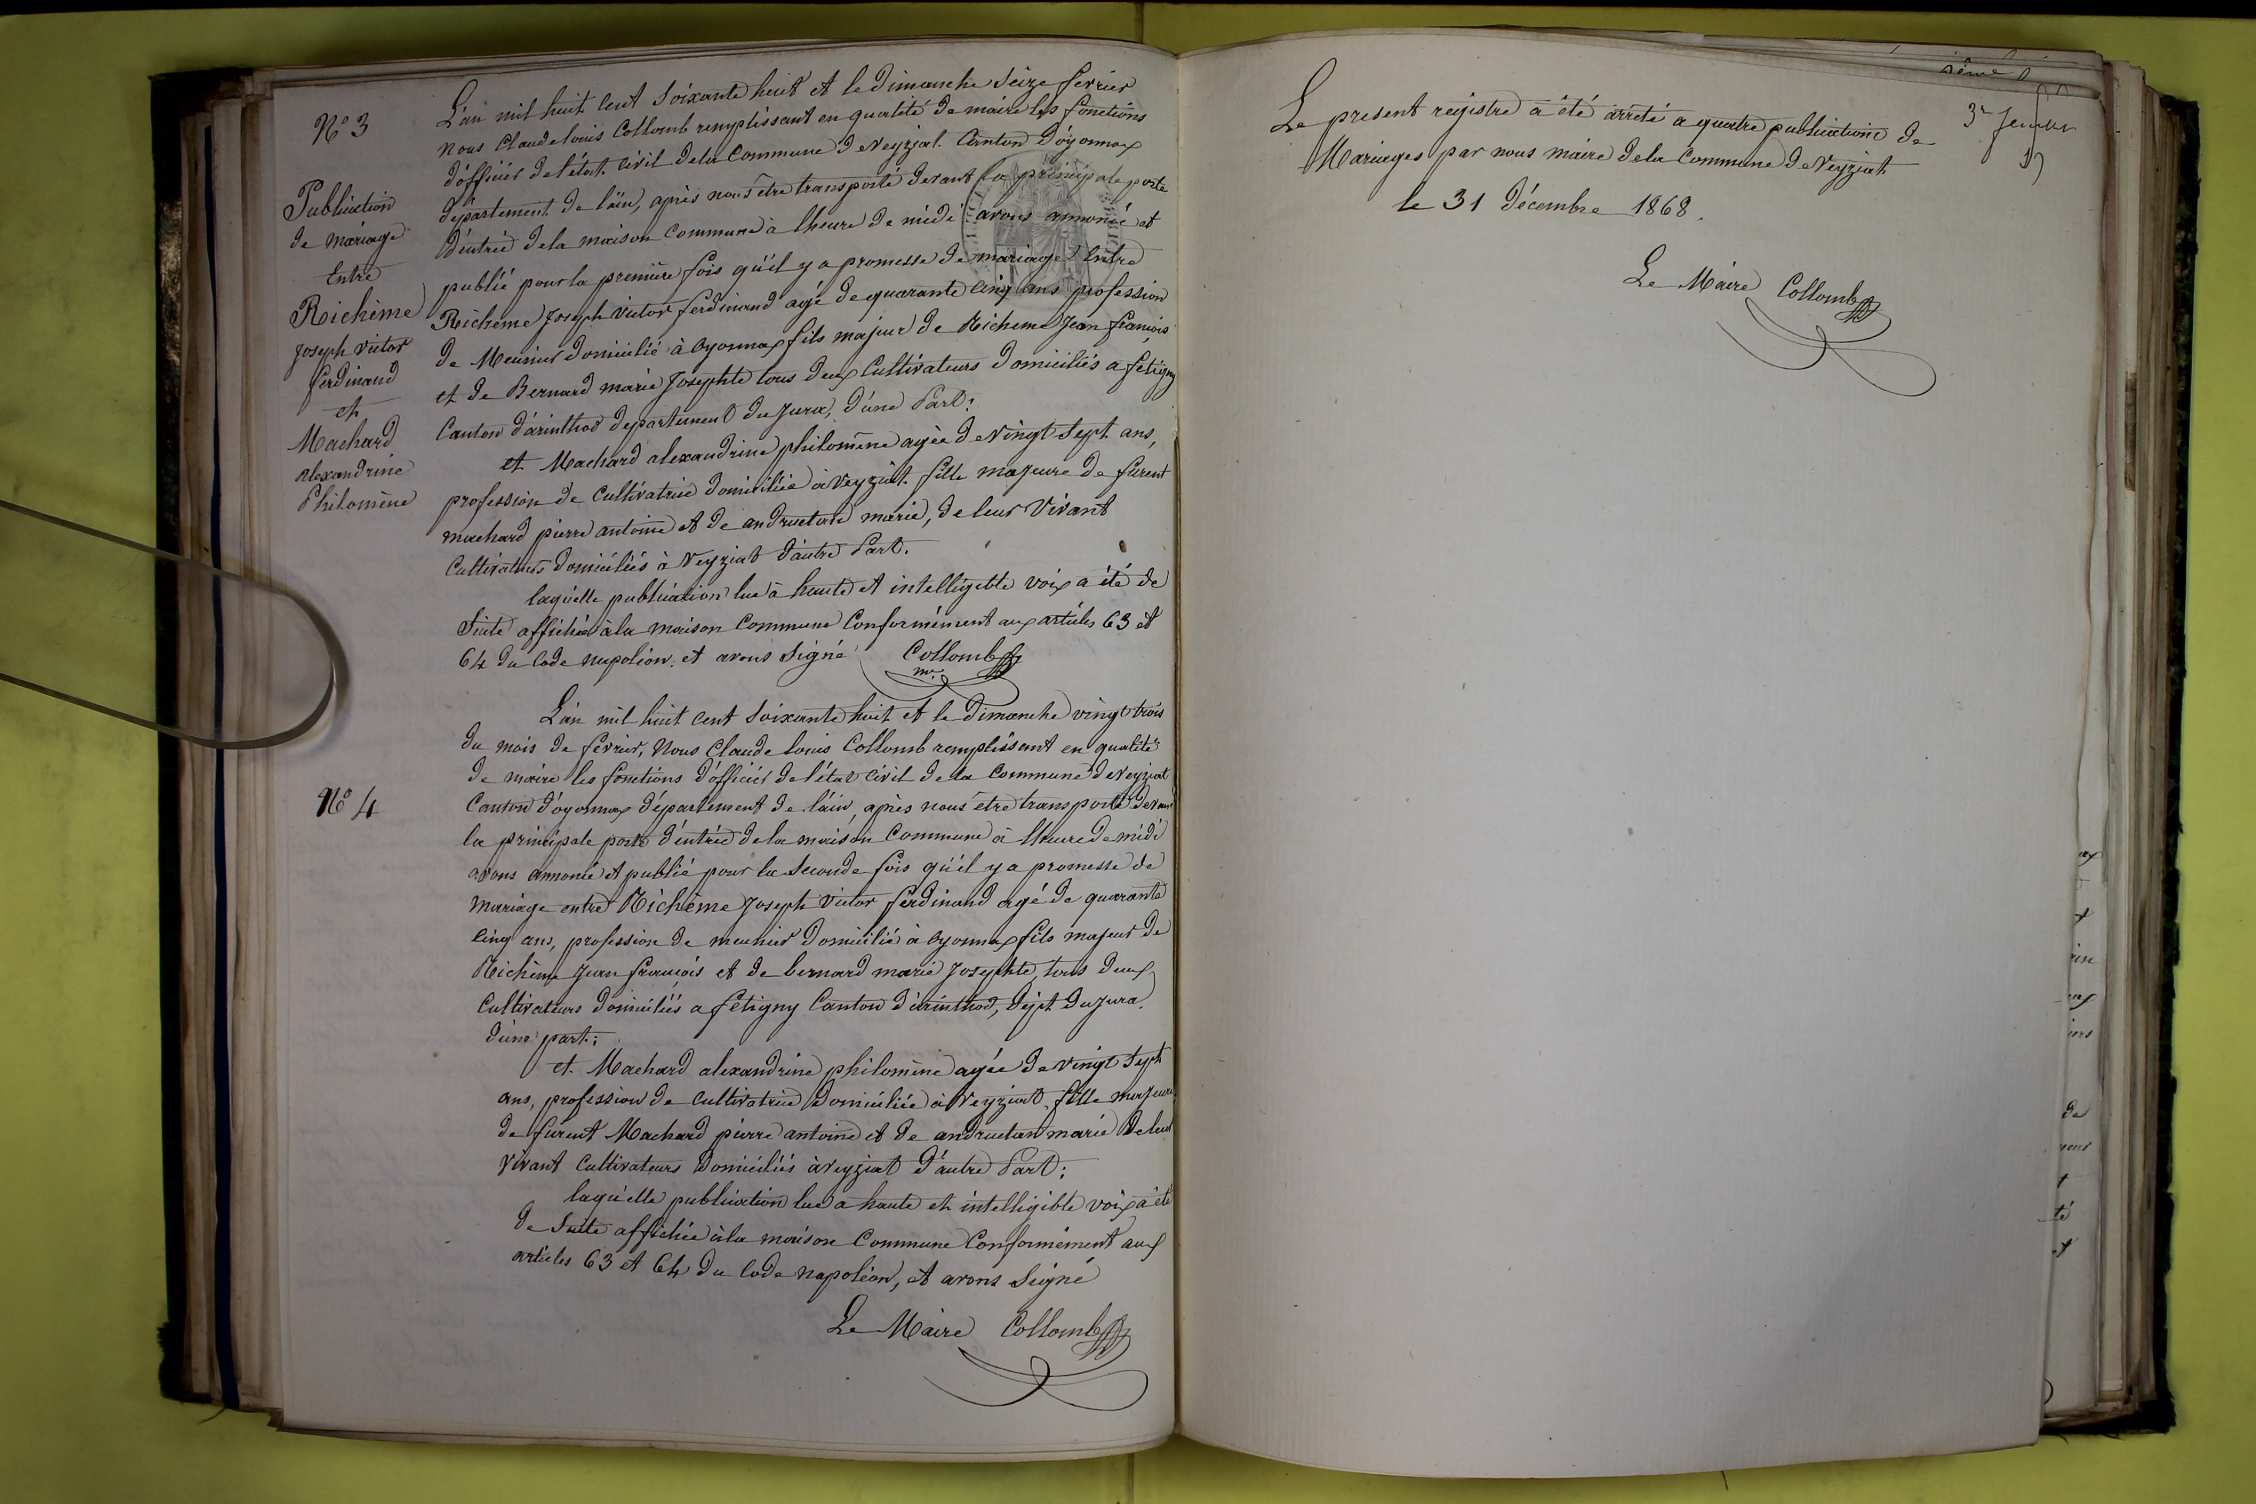 N° 3
Publication
de mariage
Entre
Richème
Joseph victor
ferdinand
et
Machard
alexandrine
Philomène
L'an mil huit cent soixante huit et le dimanche seize fevrier
nous Claude louis Collomb remplissant en qualité de maire les fonctions
d'officier de l'état civil de la commune de Veyziat Canton d'oyonnax
département de l'ain, après nous être transporté devant la principale porte
d'entrée de la maison commune à lheure de midi avons annoncé et
publié pour la première fois qu'il y a promesse de mariage Entre
Richème Joseph victor ferdinand agé de quarante cinq ans profession
de Meunier domicilié à oyonnax fils majeur de Richeme Jean françois
et de Bernard marie Josephte tous deux cultivateurs domiciliés a fétigny
Canton d'arinthod departement du Jura, d'une Part;
et Machard alexandrine philomène agée de vingt sept ans,
profession de cultivatrice domiciliée à Veyziat fille majeure de furent
machard pierre antoine et de andruetan marie, de leur vivant
Cultivateurs domiciliés à Veyziat d'autre Part.
laquelle publication lue à haute et intelligible voix a été de
suite affichée à la maison commune conformément aux articles 63 et
64 du code napoléon. et avons signé Collomb
mre
N° 4
L'an mil huit cent soixante huit et le dimanche vingt trois
du mois de février, Nous Claude louis Collomb remplissant en qualité
de maire les fonctions d'officier de l'état civil de la commune de Veyziat
Canton d'oyonnax département de l'ain, après nous être transporté devant
la principale porte d'entrée de la maison commune à lheure de midi
avons annoncé et publié pour la seconde fois qu'il y a promesse de
mariage entre Richème Joseph victor ferdinand agé de quarante
cinq ans, profession de meunier domicilié à oyonnax fils majeur de
Richème Jean françois et de bernard marie Josephte, tous deux
cultivateurs domiciliés a fétigny Canton d'arinthod, dépt du Jura.
d'une part;
et Machard alexandrine philomène agée de vingt sept
ans, profession de cultivatrice domiciliée à Veyziat, fille majeure
de furent Machard pierre antoine et de andruetan marie de leur
vivant cultivateurs domiciliés à veyziat d'autre Part;
laquelle publication lue a haute et intelligible voix a été
de suite affichée à la maison commune conformément aux
articles 63 et 64 du code napoléon, et avons signé
Le Maire Collomb
Le present registre a été arrêté a quatre publications de
Mariages par nous maire de la commune de Veyziat
le 31 décembre 1868.
Le Maire Collomb